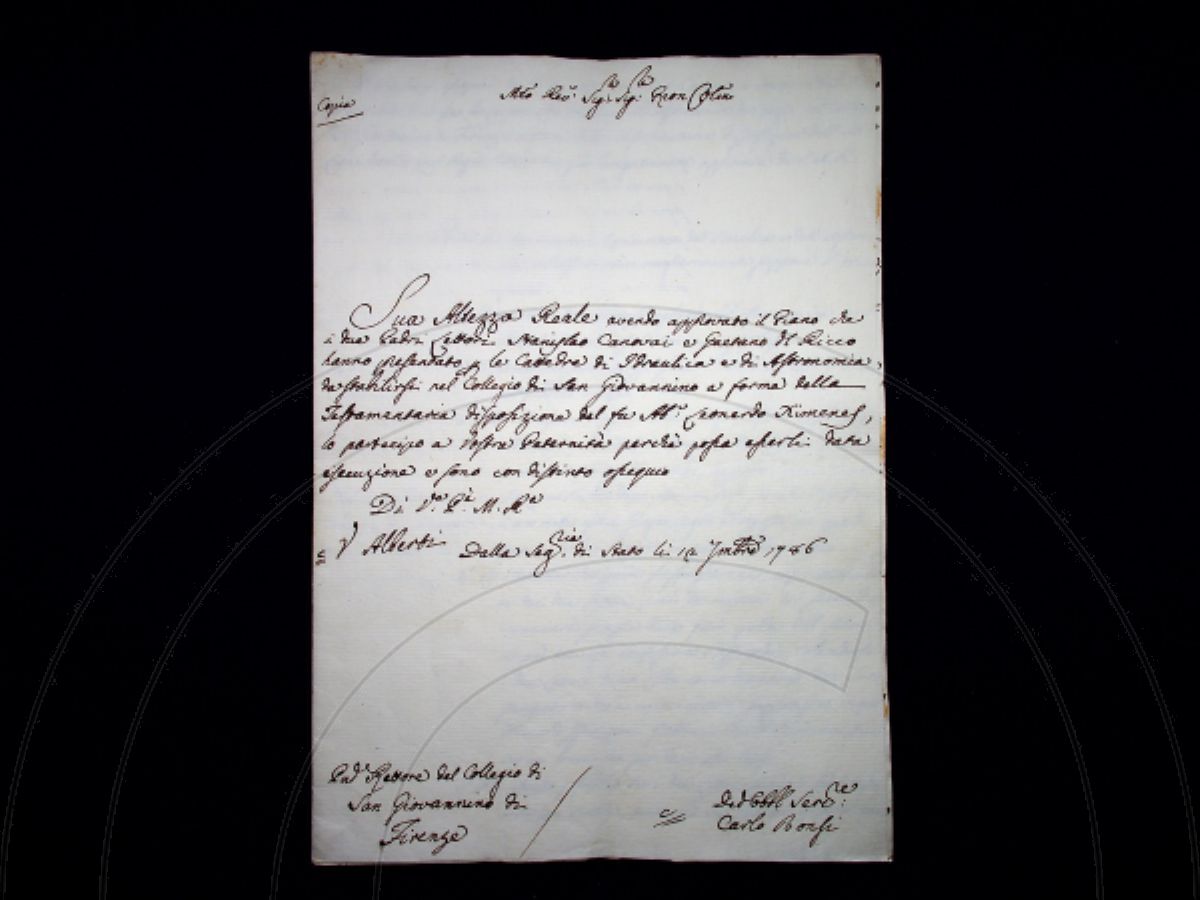 Copia
Mto Revdo Sigre Sigre Pron Colmo
Sua Altezza Reale avendo approvato il Piano che
i due Padri Lettori Stanislao Canovai e Gaetano del Ricco
hanno presentato p le Cattedre di Idraulica e di Astronomia,
da stabilirsi nel Collegio di San Giovannino a forma della
Testamentaria disposizione del fu Abe Leonardo Ximenes,
lo partecipo a Vostra Paternità perchè possa esserli data
esecuzione e sono con distinto ossequio
Di V.a P.tà M. R.a
V Alberti Dalla Segria di Stato li 12 7mbre 1786
Pad. Rettore del Collegio di
San Giovannino di
Firenze
Servre
Carlo Bonsi